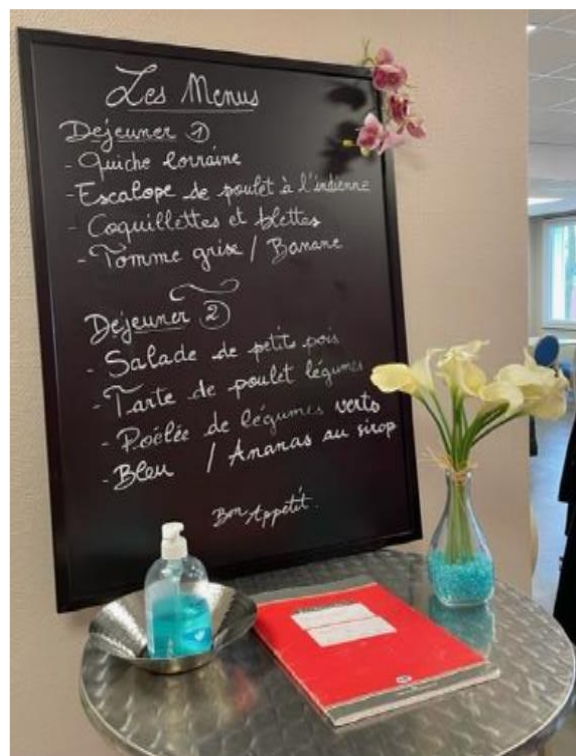 Les Menus
Dejeuner ①
- Quiche lorraine
- Escalope de poulet à l'indienne
- Coquillettes et blettes
- Tomme grise / Banane
Dejeuner ②
- Salade de petits pois
- Tarte de poulet légumes
- Poêlée de légumes verts
- Bleu / Ananas au sirop
Bon Appétit.